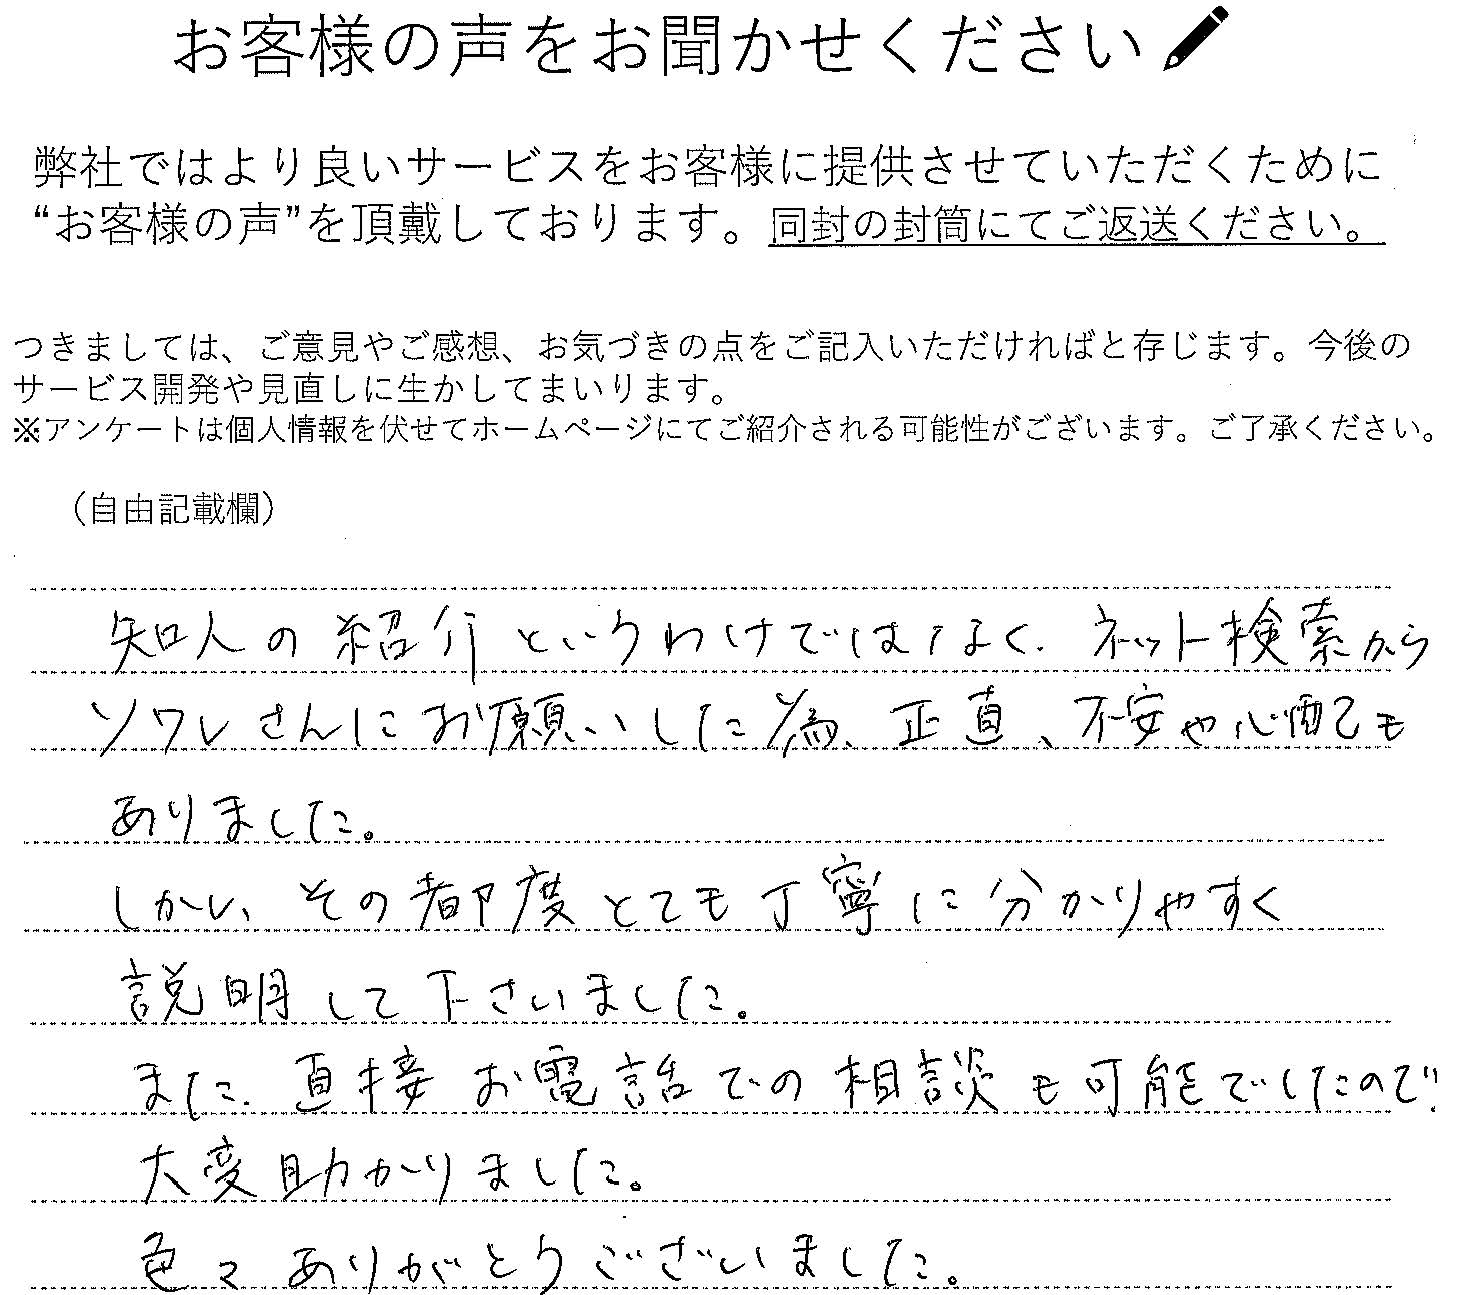 お客様の声をお聞かせください
弊社ではより良いサービスをお客様に提供させていただくために
“お客様の声”を頂戴しております。同封の封筒にてご返送ください。
つきましては、ご意見やご感想、お気づきの点をご記入いただければと存じます。今後の
サービス開発や見直しに生かしてまいります。
※アンケートは個人情報を伏せてホームページにてご紹介される可能性がございます。ご了承ください。
（自由記載欄）
知人の紹介というわけではなく、ネット検索から
ソワレさんにお願いした為、正直、不安や心配も
ありました。
しかし、その都度とても丁寧に分かりやすく
説明して下さいました。
また、直接お電話での相談も可能でしたので、
大変助かりました。
色々ありがとうございました。